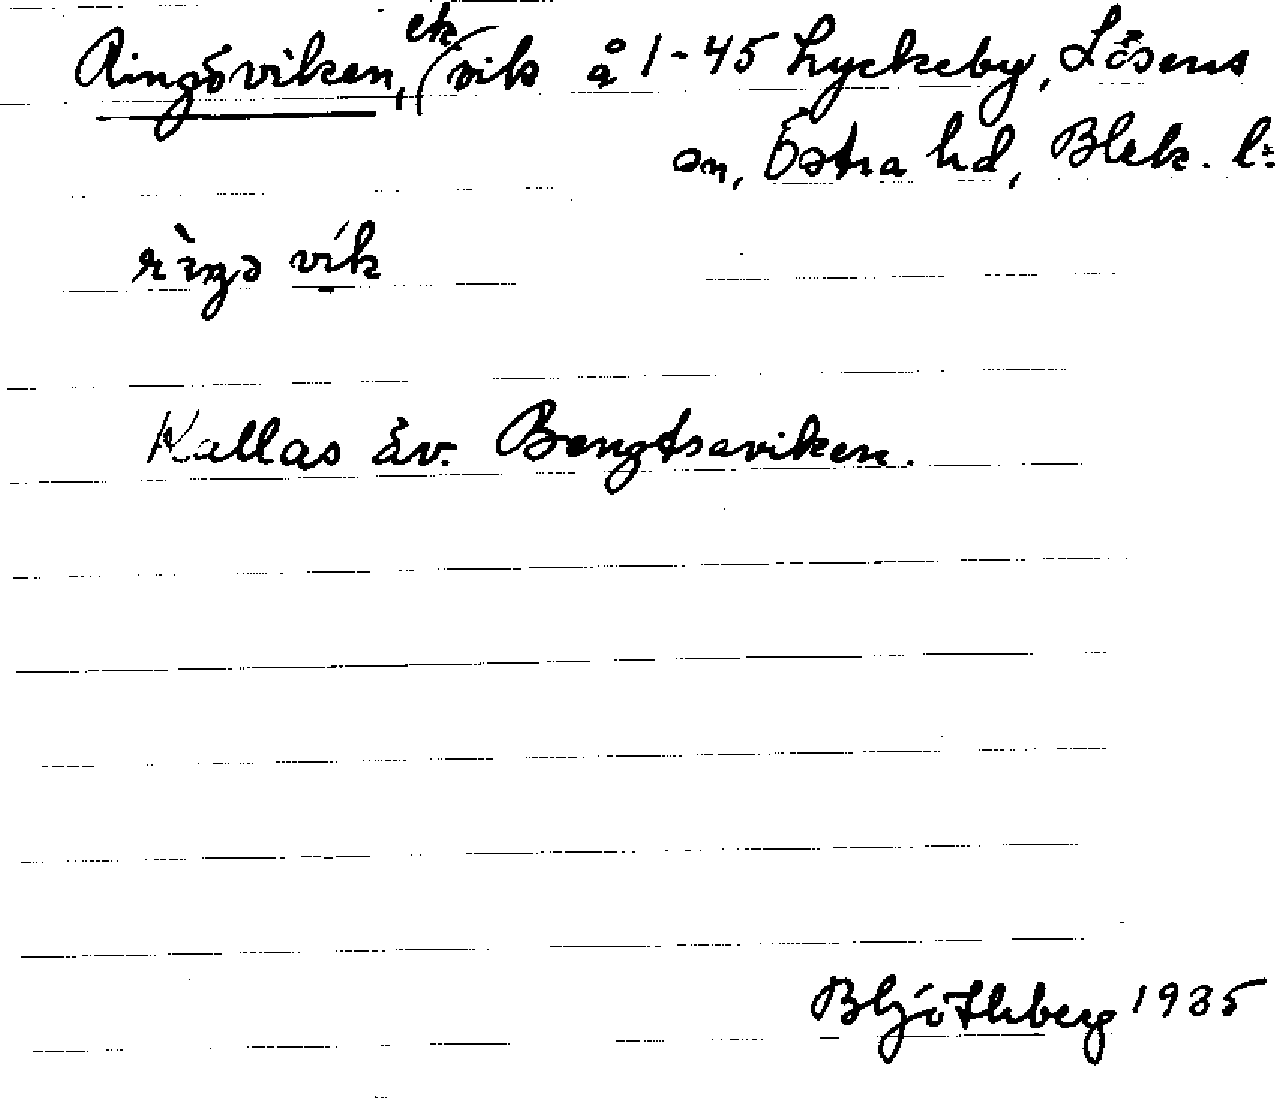 Ringöviken, ek (vik å 1-45 Lyckeby, Lösens
sn, Östra hd, Blek. l:
rìŋə vík
Kallas äv. Bengtsaviken.
1935